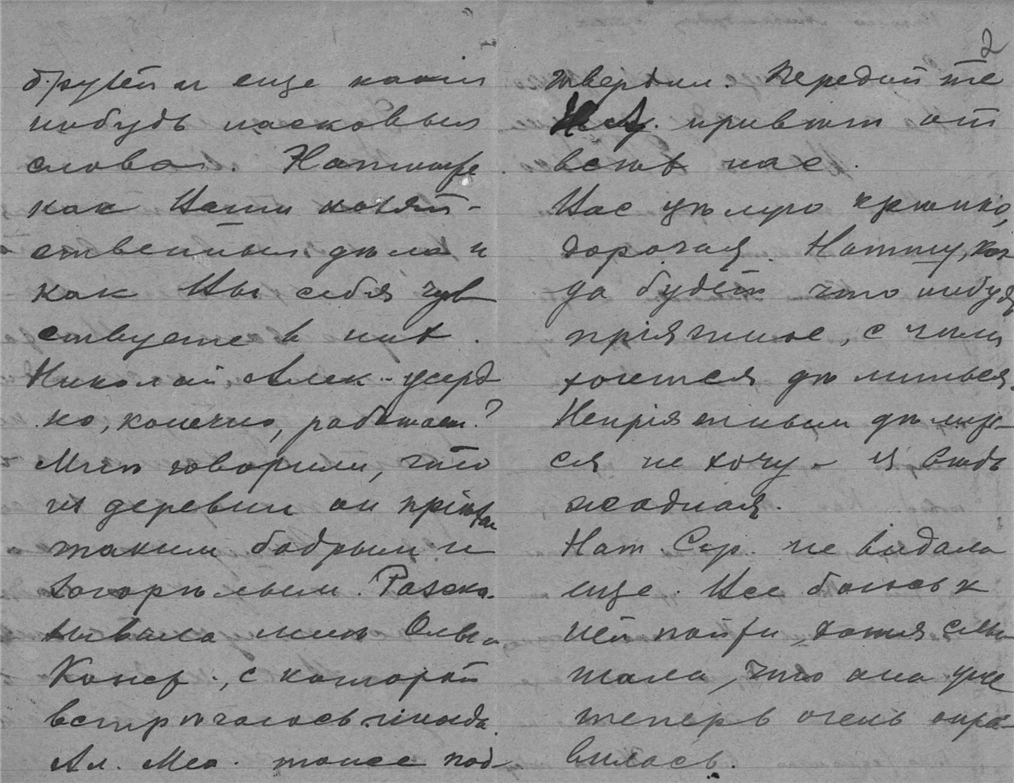 еще какiя
нибудь ласковыя
слова. Напишите
как Ваши хозяй-
ственныя дѣла и
как Вы себя чув
ствуете в них.
Николай Алек - усерд
но, конечно, работает?
Мнѣ говорили, что
из деревни он прiѣхал
таким бодрым и
загорѣлым. Разска-
зывала мнѣ Ольга
Конст., с которой
встрѣчалась иногда.
Ал. тоже под-
2
твердил. Передай те
привѣт от
всѣх нас.
Вас цѣлую крѣпко,
дорогая. Напишу, ког
да будет что нибудь
прiятное, с чѣм
хочется дѣлиться.
Непрiятным дѣлить-
ся не хочу - я вѣдь
жадная.
Нат. Сер. не видала
еще. Все боюсь к
ней пойти, хотя слы-
шала, что она уже
теперь очень опра-
вилась.